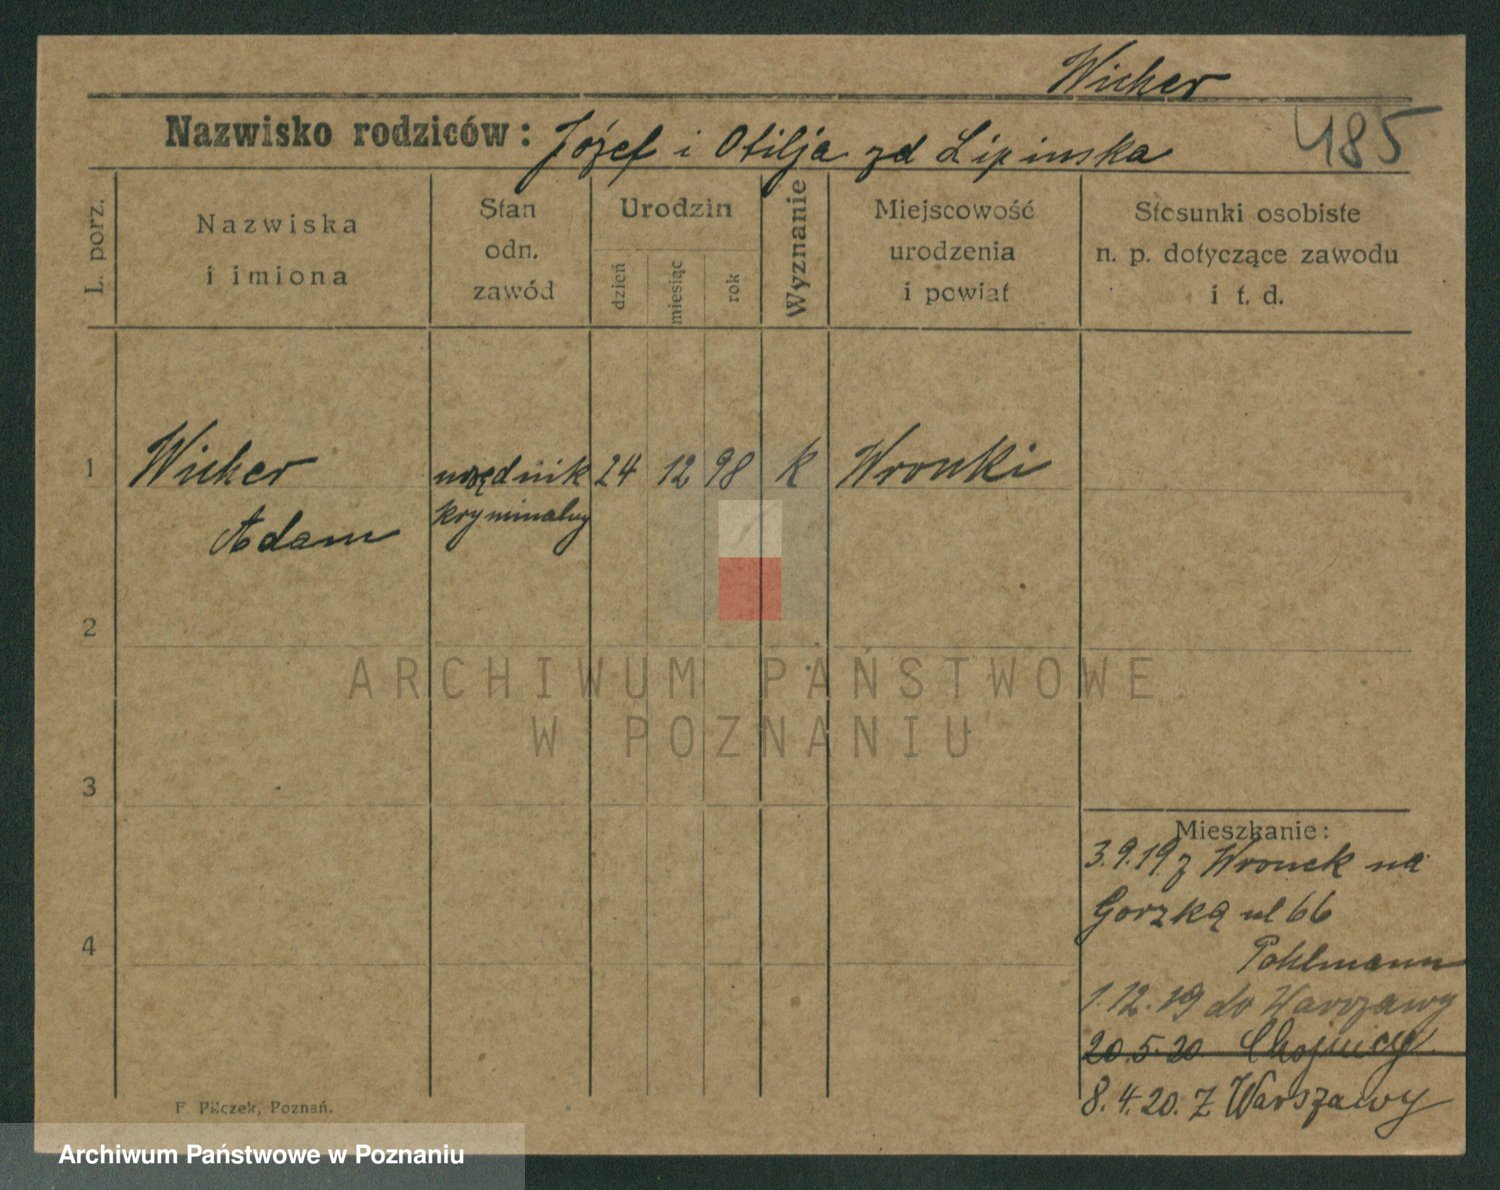 Wicher
485
Nazwisko rodziców: Józef i Otilja zd Lipinska
L. porz.
Nazwiska
i imiona
Stan
odn.
zawód
Urodzin
dzień
miesiąc
rok
Wyznanie
Miejscowość
urodzenia
i powiat
Stosunki osobiste
n. p. dotyczące zawodu
i t. d.
1
Wicher
Adam
urzędnik
kryminalny
24
12
98
k
Wronki
2
3
4
ARCHIWUM PAŃSTWOWE
W POZNANIU
Mieszkanie:
3.9.19 z Wronek na
Gorzką ul 66
Pohlmann
1.12.19 do Warszawy
20.5.20 Chojnicy
8.4.20. Z Warszawy
F. Pilczek, Poznań.
Archiwum Państwowe w Poznaniu